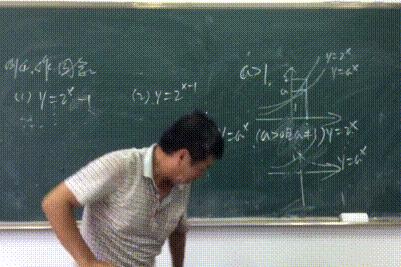 (1) y=2ˣ-1
(2) y=2ˣ⁻¹
a>1
y=2ˣ
y=aˣ
a
1
y=aˣ (a>0且a≠1) y=2ˣ
y=aˣ